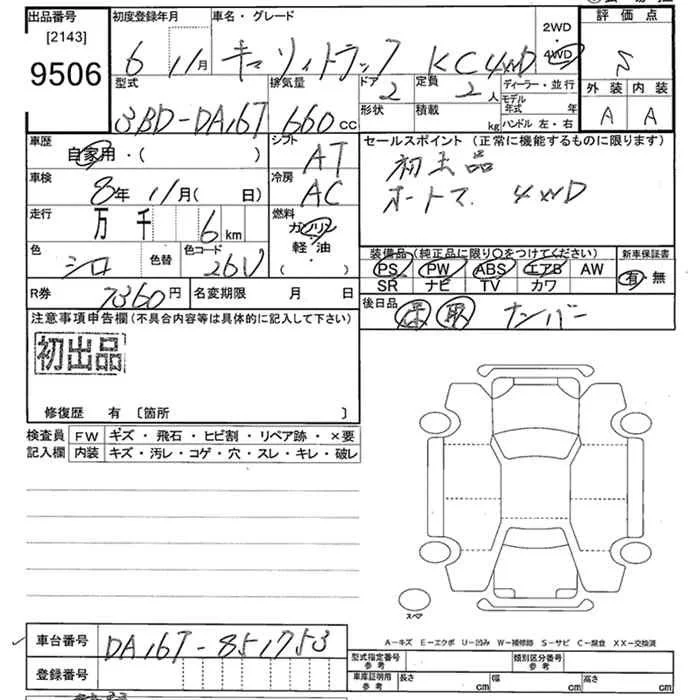 出品番号 初度登録年月 車名・グレード 2WD・4WD 評価点
[2143] 9506 6 11月 キャリイトラック KC4WD S
型式 排気量 ドア 2 定員 2人 ディーラー・並行 外装 内装
3BD-DA16T 660cc 形状 積載 kg モデル年式 年 ハンドル 左・右 A A
車歴 自家用・( ) シフト AT セールスポイント (正常に機能するものに限ります)
車検 8年 11月( 日) 冷房 AC 初出品
オートマ 4WD
走行 万 千 6 km 燃料 ガソリン 軽・油 ( )
色 シロ 色替 色コード 26U
装備品(純正品に限り○をつけてください) 新車保証書
PS PW ABS エアB AW 有・無
SR ナビ TV カワ
R券 7360円 名変期限 月 日 後日品 保 取 ナンバー
注意事項申告欄(不具合内容等は具体的に記入して下さい)
初出品
修復歴 有 〔箇所 〕
検査員記入欄 FW キズ・飛石・ヒビ割・リペア跡・×要
内装 キズ・汚レ・コゲ・穴・スレ・キレ・破レ
スペア
A-キズ E-エクボ U-凹み W-補修跡 S-サビ C-腐食 XX-交換済
車台番号 DA16T-851753
登録番号
型式指定番号 参考 類別区分番号 参考
車庫証明用 参考 長さ cm 幅 cm 高さ cm